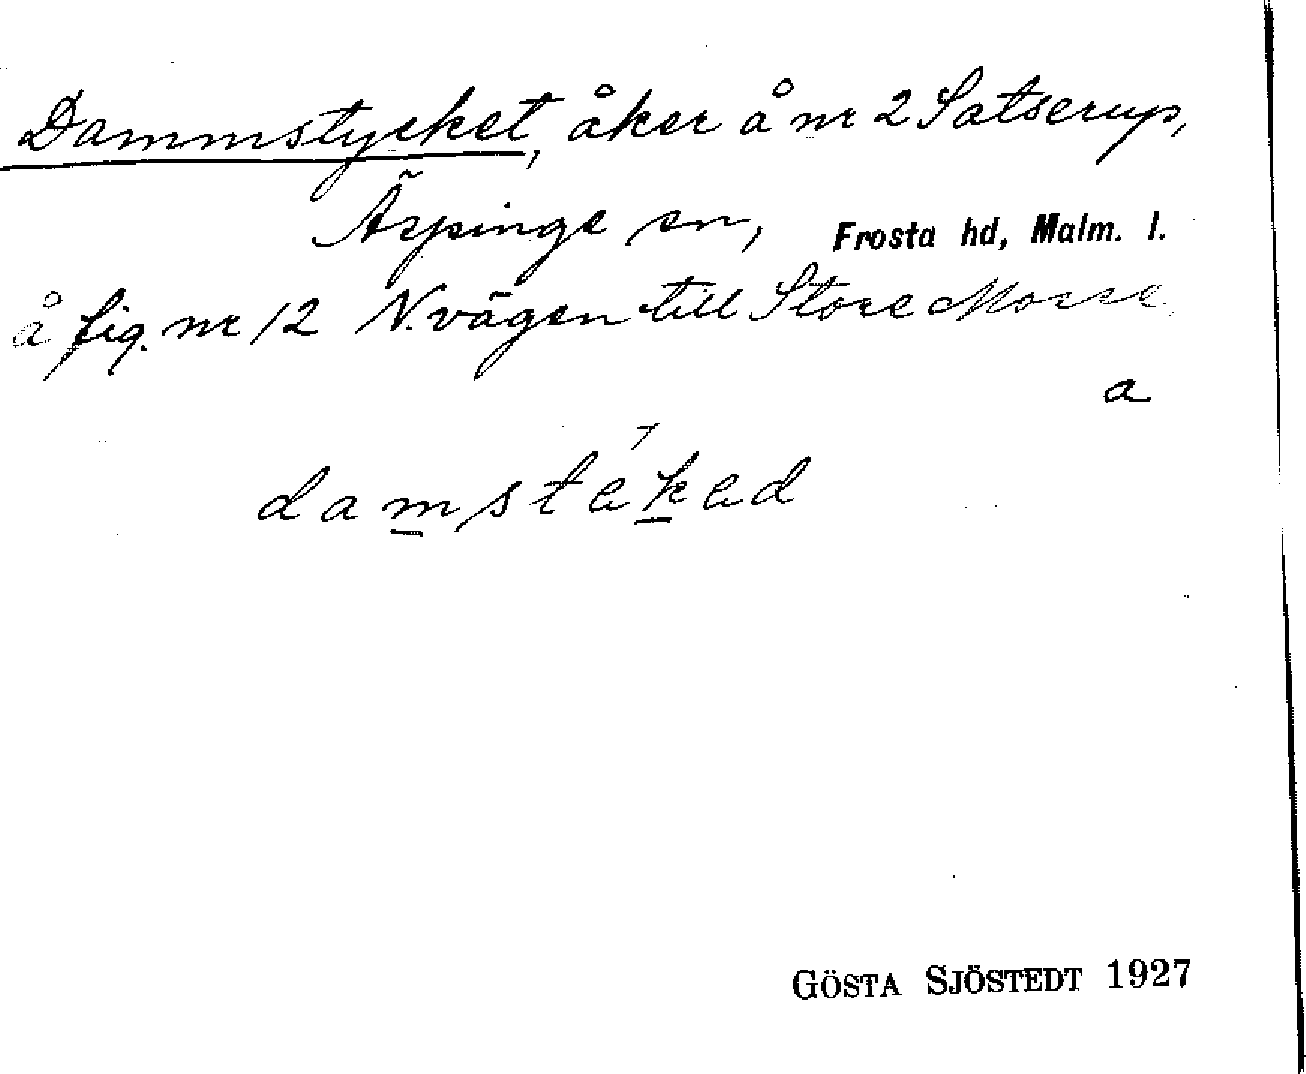 Dammstycket, åker å nr 2 Satserup,
Äspinge sn, Frosta hd, Malm. l.
å fig. nr 12 N. vägen till Store Mosse
a
damstekad
GÖSTA SJÖSTEDT 1927